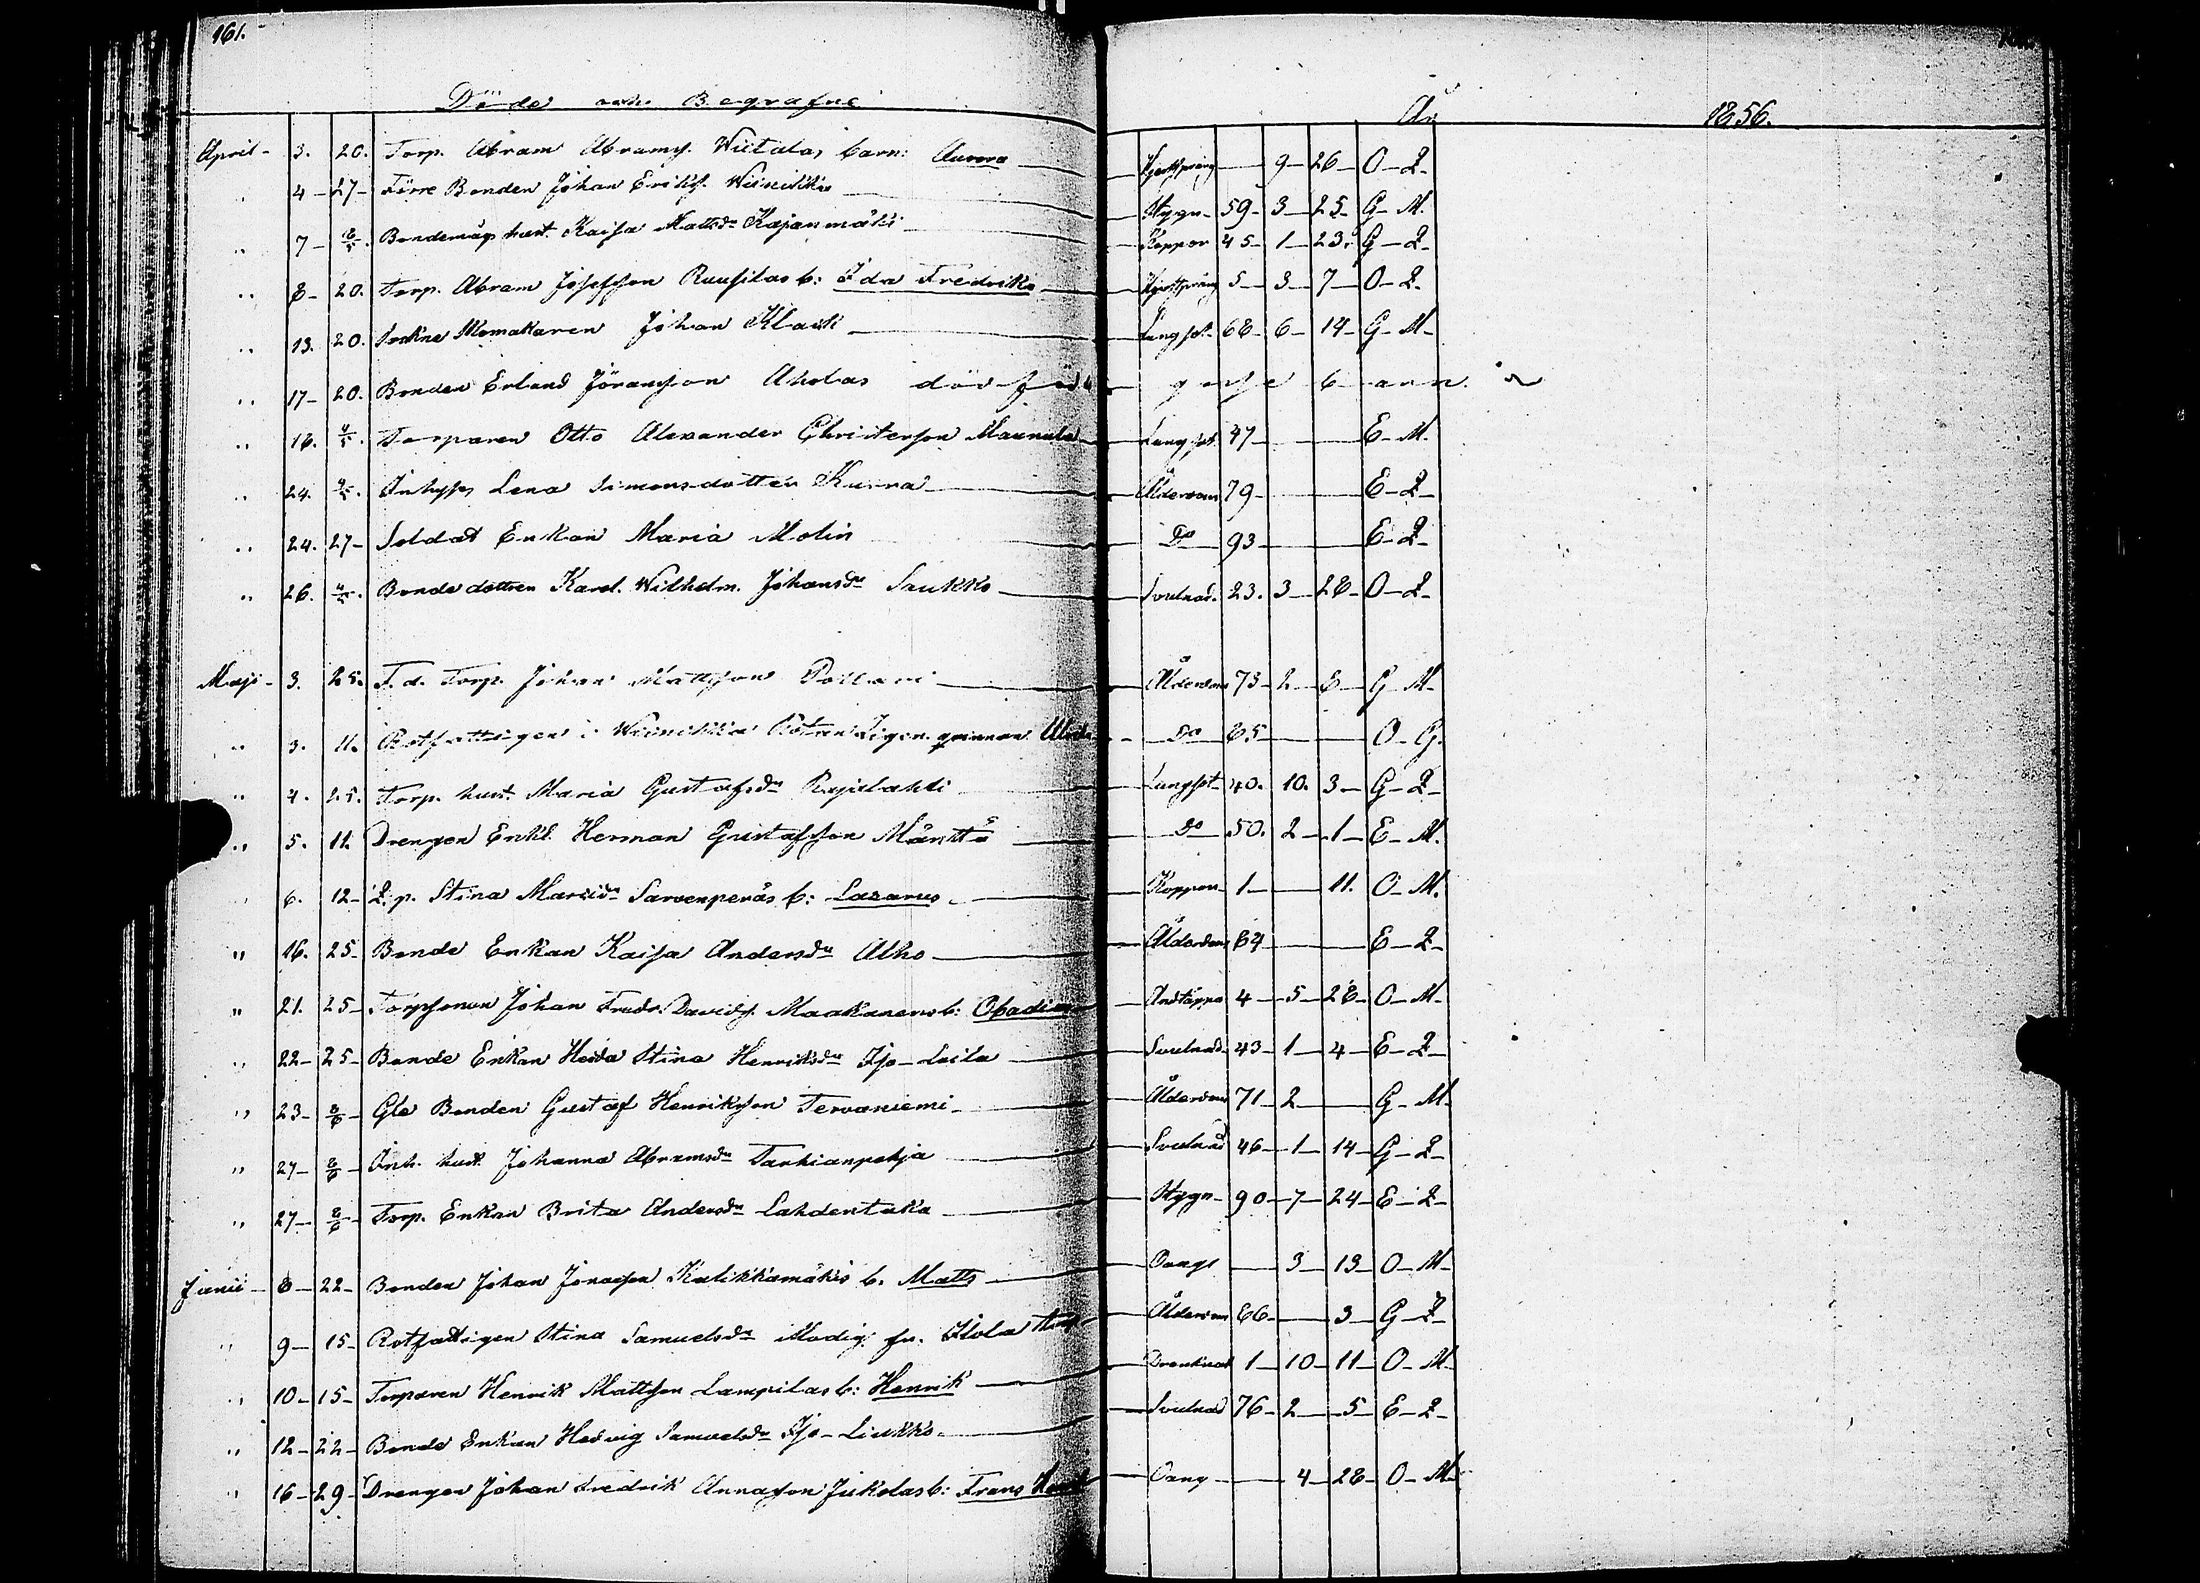 161.
Döde och Begrafne År 1856.
April - 3. 20. Torp. Abram Abramss. Wiitalas barn: Aurora — 9 - 26 - O - Q -
" 4 - 27 - Förre Bonden Johan Erikss. Wiinikka Stygn - 59 - 3 - 25 - G - M.
" 7 - 8/5. Bondemågs hust. Kaisa Mattsdr Kajanmäki Koppor 45 - 1 - 23. G - Q -
" 8 - 20. Torp. Abram Josefsson Ruusilas b: Ida Fredrika 5 - 3 - 7 - O - Q -
" 13. 20. Sockne Skomakaren Johan Klack Lungsot 68 - 6 - 14 - G - M -
" 17 - 20. Bonden Erland Göransson Aholas dödfödt gosse barn.
" 18. 4/5. Torparen Otto Alexander Christersson Maunula Lungsot 47 - E - M.
" 24. 4/5. Inhyses Lena Simonsdotter Kurra Ålderdom 79 - E - Q -
" 24. 27 - Soldat Enkan Maria Molin Do 93 - E - Q -
" 26. 4/5. Bondedottren Karol. Wilhelm. Johansdr Saukko Svulnad. 23. 3 - 28 - O - Q -
Maji - 3. 25. F. d. Torp. Johan Mattsson Pollari Ålderdom 75 - 2 - 8 - G - M -
" 3. 11. Rotfattigen i Wiinikka Rotan Do 65 - O - Q.
" 4. 25. Torp. hust. Maria Gustafsdr Rajalahti Lungsot 40. 10. 3 - G - Q -
" 5. 11. Drengen Enkl. Herman Gustafsson Mänttä Do 50. 2 - 1 - E - M.
" 6. 12 - Q. p. Stina Marisdr Sarvenperäs b: Lazarus Koppor 1 - 11. O - M.
" 16. 25 - Bonde Enkan Kaisa Andersdr Alho Ålderdom 84 - E - Q -
" 21. 25 - Torpsonen Johan Fredr. Davidss. Maakanens b: Obadias Andtäppa 4 - 5 - 28 - O - M -
" 22 - 25 - Bonde Enkan Heda Stina Henriksdr Iso-Laila Svulnad 43 - 1 - 4 - E - Q -
" 23 - 8/6 - Gle Bonden Gustaf Henriksson Tervaniemi Ålderdom 71 - 2 - G - M -
" 27 - 8/6 - Inh. hust. Johanna Abramsdr Tarkianpohja Svulnad 46 - 1 - 14 - G - Q -
" 27 - 8/6 - Torp. Enkan Brita Andersdr Lahdentaka Stygn - 90 - 7 - 24 - E - Q -
Junii - 8 - 22 - Bonden Johan Jonasson Kalikkamäkis b. Matts 3 - 13 - O - M -
" 9 - 15 - Rotfattigen Stina Samuelsdr Modig fr. Ålderdom 66 - 3 - G - Q
" 10 - 15 - Torparen Henrik Mattsson Lampilas b: Henrik Drunknad 1 - 10 - 11 - O - M -
" 12 - 22 - Bonde Enkan Hedvig Samuelsdr Iso-Liukko. Svulnad 76 - 2 - 5 - E - Q -
" 16 - 29 - Drengen Johan Fredrik Annasson Jukolas b: Frans 4 - 28 - O - M -